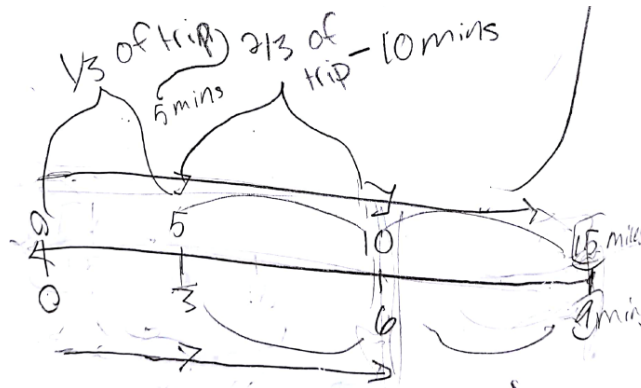 1/3 of trip 2/3 of trip - 10 mins
5 mins
0 5 10 15 miles
0 3 6 9 mins